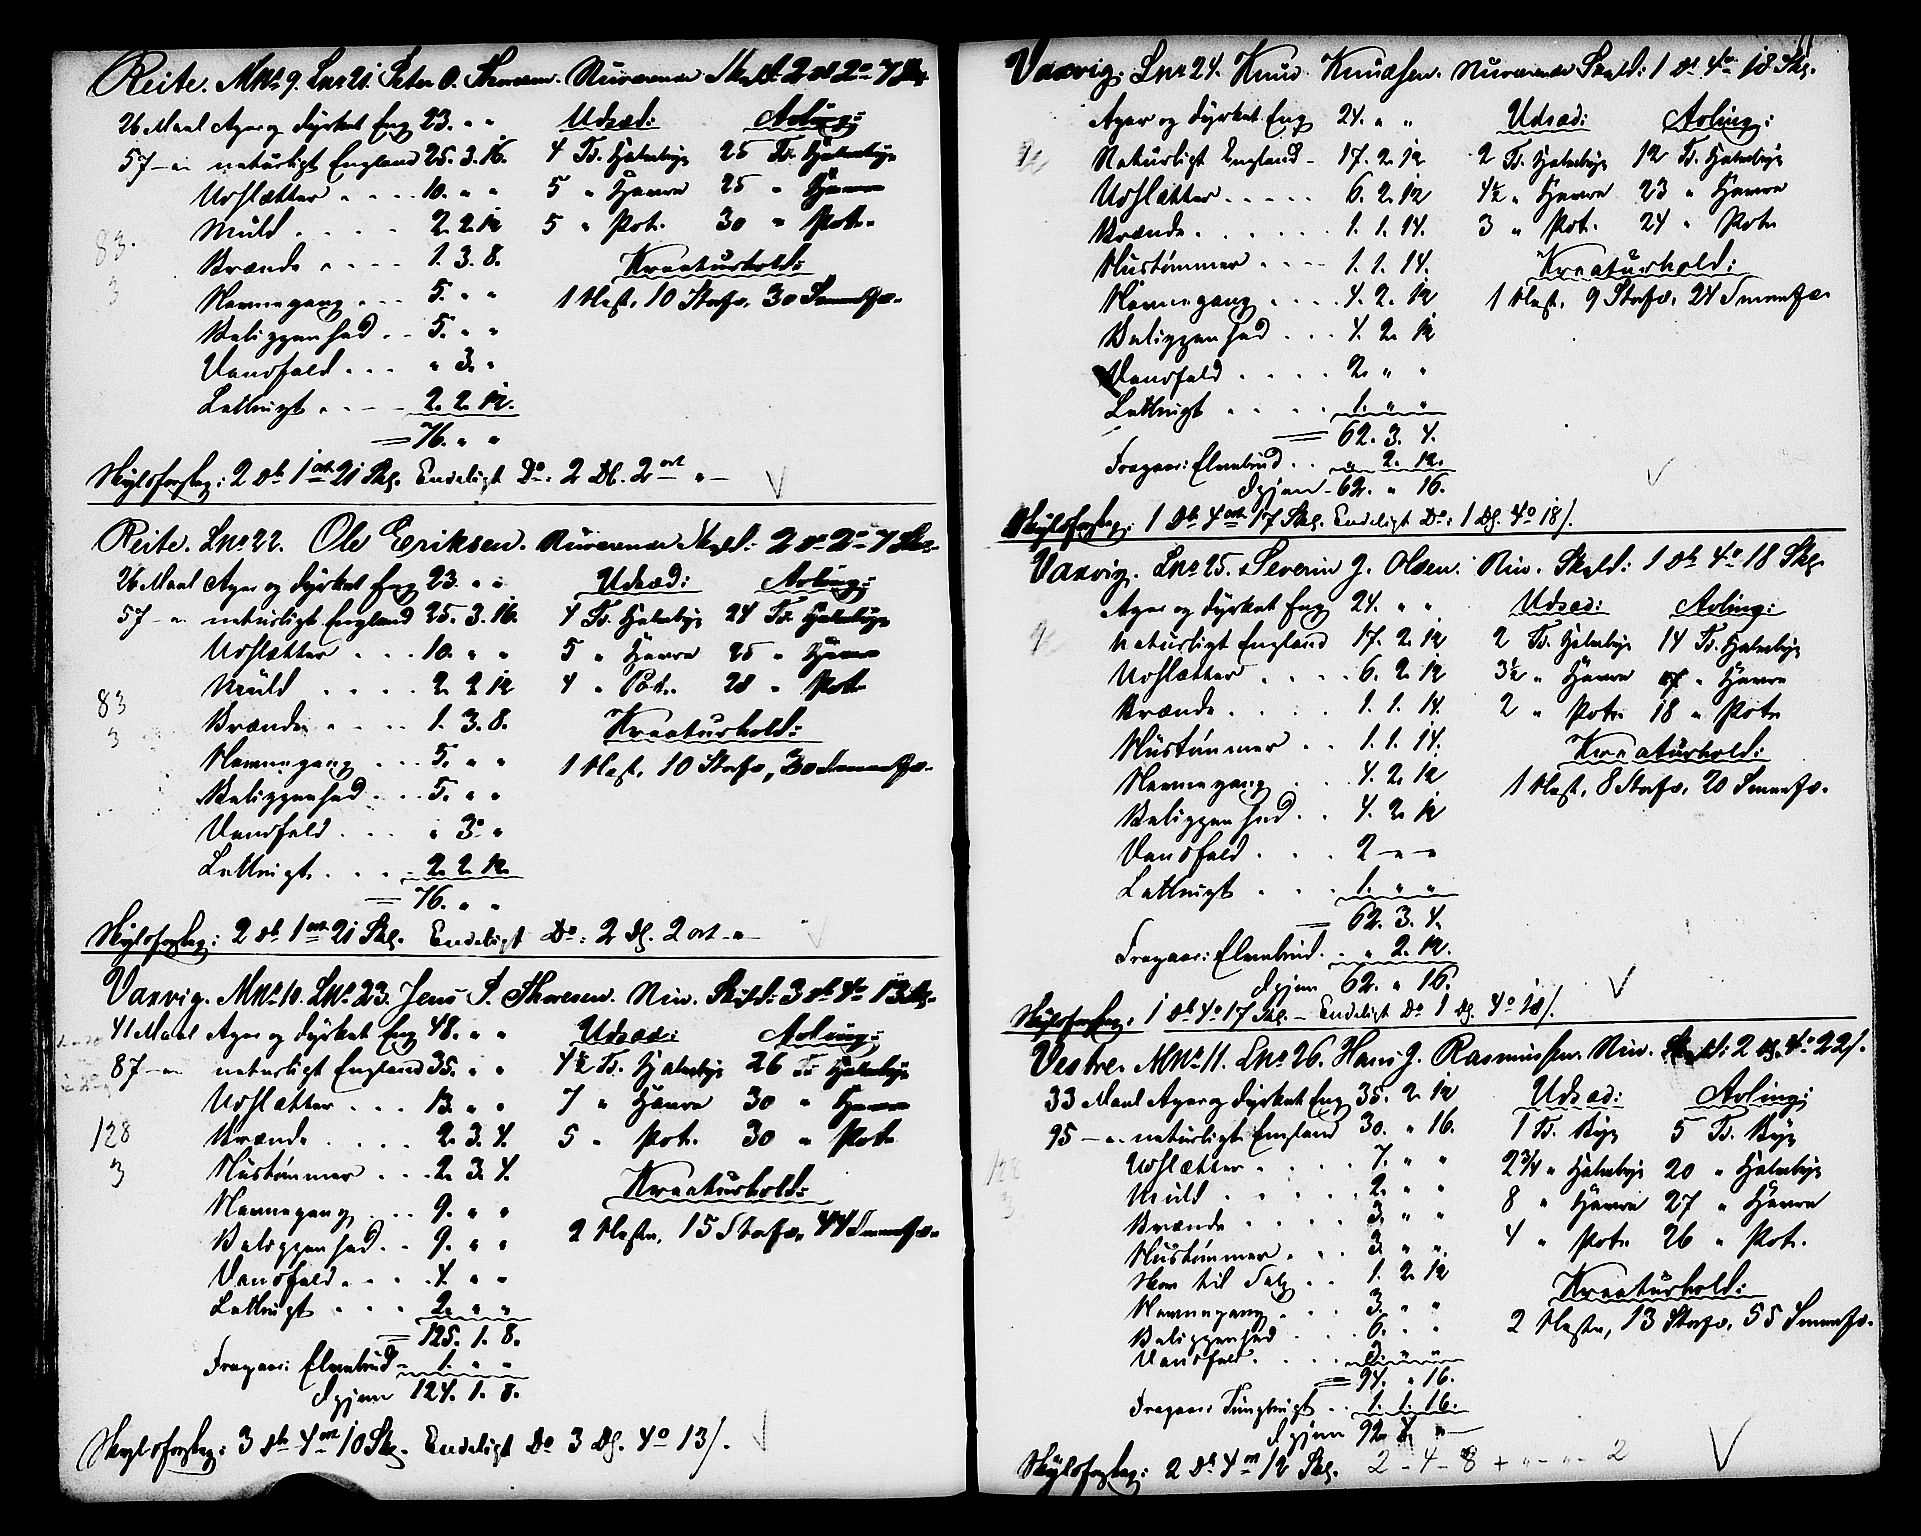 Reite. MNo 9. LNo 21. Peter O. Thoresen. Nuværende Skyld: 2 Dl 2 o 7 Sk.
26 Maal Ager og dyrket Eng 23. " " Udsæd: Avling:
57 — " — naturligt England 25. 3. 16. 4 Td. Halvbyg 25 Td. Halvbyg
Udslætter . . . . 10. " " 5 " Havre 25 " Havre
Muld . . . . 2. 2. 12 5 " Pot. 30 " Pot.
83. Brænde . . . . 1. 3. 8. Kreaturhold:
3 Havnegang . . . 5. " " 1 Hest, 10 Storfæ, 30 Smaafæ.
Beliggenhed . . 5. " "
Vandfald . . . " 3. "
Lettbrugt . . . . 2. 2. 12.
= 76. " "
Skyldforslag: 2 Dl 1 ort 21 Sk. Endeligt Do: 2 Dl. 2 ort " —
Reite. LNo 22. Ole Eriksen. Nuværende Skyld: 2 Dl 2 o 7 Sk.
26 Maal Ager og dyrket Eng 23. " " Udsæd: Avling:
57 — " naturligt England 25. 3. 16. 4 Td. Halvbyg 24 Td. Halvbyg
Udslætter . . . 10. " " 5 " Havre 25 " Havre
Muld . . . . 2. 2. 12 4 " Pot. 28 " Pot.
83 Brænde . . . . 1. 3. 8. Kreaturhold:
3 Havnegang . . . 5. " " 1 Hest, 10 Storfæ, 30 Smaafæ.
Beliggenhed . . . 5. " "
Vandfald . . . . " 3. "
Lettbrugt . . . . 2. 2. 12.
= 76. " "
Skyldforslag: 2 Dl 1 ort 21 Sk. Endeligt Do: 2 Dl. 2 ort — " —
Vaxvig. MNo 10. LNo 23. Jens P. Thoresen. Nuv. Skyld: 3 Dl 4 o 13 Sk.
41 Maal Ager og dyrket Eng 48. " " Udsæd: Avling:
87 — " naturligt England 35. " " 4½ Td. Halvbyg 26 Td. Halvbyg
Udslætter . . . 13. " " 7 " Havre 30 " Havre
128 Brænde . . . . 2. 3. 4. 5 " Pot. 30 " Pot.
3 Hustømmer . . . 2. 3. 4. Kreaturhold:
Havnegang . . . 9. " " 2 Heste, 15 Storfæ, 44 Smaafæ.
Beliggenhed . . 9. " "
Vandfald . . . . 4. " "
Lettbrugt . . . 2. " "
= 125. 1. 8.
Fragaar: Elvebrud 1. " "
Igjen 124. 1. 8.
Skyldforslag: 3 Dl 4 ort 10 Sk. Endeligt Do 3 Dl. 4 o 13/.
Vaxvig. LNo 24. Knud Knudsen. Nuværende Skyld: 1 Dl 4 o 18 Sk.
Ager og dyrket Eng 24. " " Udsæd: Avling:
Naturligt England — 17. 2. 12 2 Td. Halvbyg 12 Td. Halvbyg
Udslætter . . . . . 6. 2. 12 4½ " Havre 23 " Havre
Brænde . . . . . . 1. 1. 14. 3 " Pot. 24 " Pot.
Hustømmer . . . . 1. 1. 14. Kreaturhold:
Havnegang . . . . 4. 2. 12 1 Hest, 9 Storfæ, 24 Smaafæ.
Beliggenhed . . . 4. 2. 12
Vandfald . . . . 2. " "
Lettbrugt . . . . . 1. " "
= 62. 3. 4.
Fragaar: Elvebrud . . " 2. 12.
Igjen — 62. " 16.
Skyldforslag: 1 Dl 4 ort 17 Sk. Endeligt Do: 1 Dl. 4 o 18/.
Vaxvig. LNo 25. Severin J. Olsen. Nuv. Skyld: 1 Dl 4 o 18 Sk.
Ager og dyrket Eng 24. " " Udsæd: Avling:
Naturligt England 17. 2. 12 2 Td. Halvbyg 14 Td. Halvbyg
Udslætter . . . . 6. 2. 12 3½ " Havre 17 " Havre
Brænde . . . . 1. 1. 14. 2 " Pot. 18 " Pot.
Hustømmer . . 1. 1. 14. Kreaturhold:
Havnegang . . 4. 2. 12 1 Hest, 8 Storfæ, 20 Smaafæ.
Beliggenhed . . 4. 2. 12
Vandfald . . . 2 — " — "
Lettbrugt . . . 1. " "
= 62. 3. 4.
Fragaar: Elvebrud . . " 2. 12.
Igjen 62. " 16.
Skyldforslag: 1 Dl 4 o 17 Sk. — Endeligt Do 1 Dl. 4 o 18/.
Vestre. MNo 11. LNo 26. Hans J. Rasmussen. Nuv. Skyld: 2 Dl. 4 o 22/.
33 Maal Ager og dyrket Eng 35. 2. 12 Udsæd: Avling:
95 — " naturligt England 30. " 16. 1 Td. Byg 5 Td. Byg
Udslætter . . . . 7. " " 2¾ " Halvbyg 20 " Halvbyg
128 Muld . . . . . 2. " " 8 " Havre 27 " Havre
3 Brænde . . . . . 3. " " 4 " Pot. 26 " Pot.
Hustømmer . . . 3. " " Kreaturhold:
Skov til Salg . . 1. 2. 12 2 Heste, 13 Storfæ, 55 Smaafæ.
Havnegang . . 3. " "
Beliggenhed . . . 6. " "
Vandfald . . . .
= 94. " 16.
Fragaar: Tungbrugt . . 1. 1. 16.
Igjen 92. 4. " —
Skyldforslag: 2 Dl 4 ort 12 Sk. 2 — 4 — 8 + " — " — 2